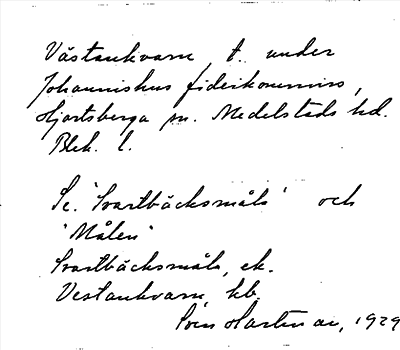 Västankvarn, t. under
Johannishus fideikommiss,
Hjortsberga sn. Medelstads hd.
Blek. l.
Se. 'Svartbäcksmåla' och
'Målen'
Svartbäcksmåla, ek.
Vestankvarn, kb.
Sven Hartman, 1929